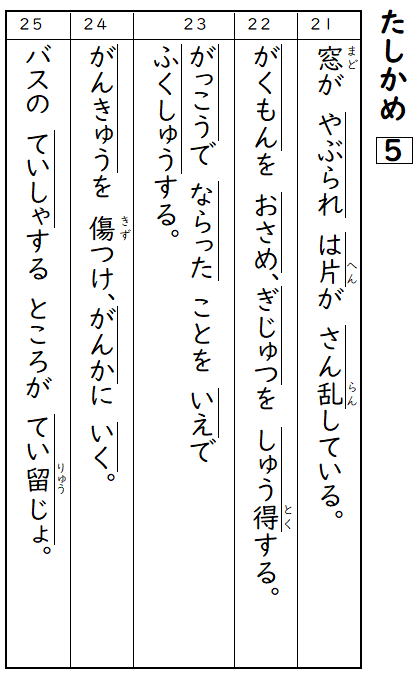 たしかめ 5
21
窓が やぶられ は片が さん乱している。
まど
へん
らん
22
がくもんを おさめ、ぎじゅつを しゅう得する。
とく
23
がっこうで ならった ことを いえで
ふくしゅうする。
24
がんきゅうを 傷つけ、がんかに いく。
きず
25
バスの ていしゃする ところが てい留じょ。
りゅう